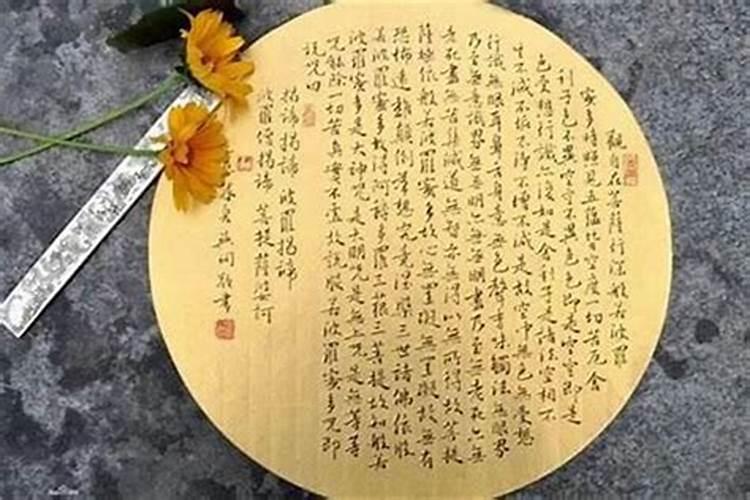 觀自在菩薩行深般若波羅
蜜多時照見五蘊皆空度一切苦厄舍
利子色不異空空不異色色即是空空即是
色受想行識亦復如是舍利子是諸法空相不
生不滅不垢不淨不增不減是故空中無色無受想
行識無眼耳鼻舌身意無色聲香味觸法無眼界
乃至無意識界無無明亦無無明盡乃至無老死亦無
老死盡無苦集滅道無智亦無得以無所得故菩提
薩埵依般若波羅蜜多故心無罣礙無罣礙故無有
恐怖遠離顛倒夢想究竟涅槃三世諸佛依般
若波羅蜜多故得阿耨多羅三藐三菩提故知般若
波羅蜜多是大神咒是大明咒是無上咒是無等等
咒能除一切苦真實不虛故說般若波羅蜜多咒即
說咒曰
揭諦揭諦 波羅揭諦
波羅僧揭諦 菩提薩婆訶
敬書